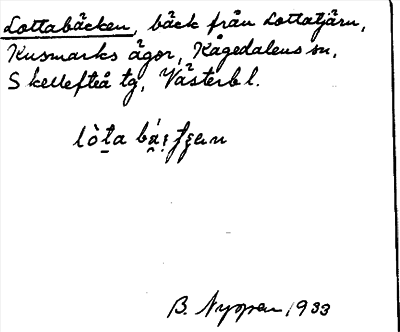 Lottabäcken, bäck från Lottatjärn,
Kusmarks ägor, Kågedalens sn,
Skellefteå tg, Västerb l.
B. Nyman, 1933